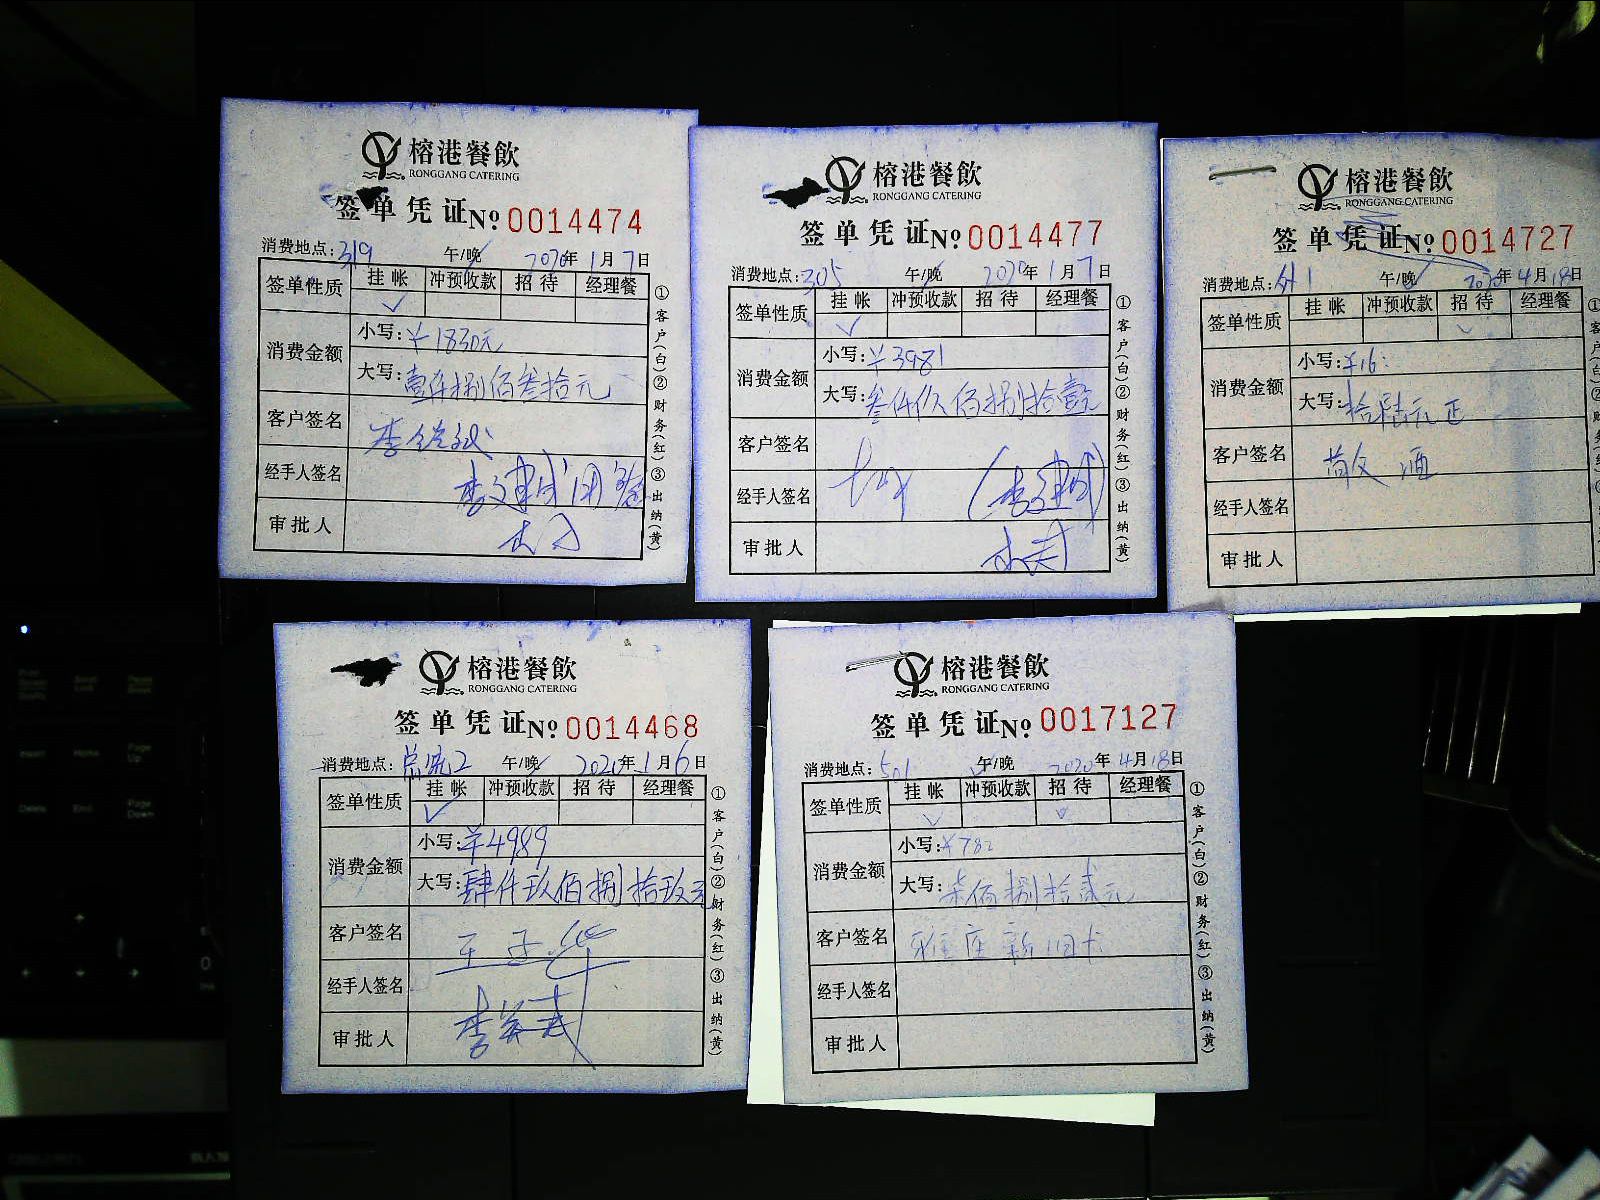 榕港餐飲
RONGGANG CATERING
签单凭证№0014474
消费地点:319 午/晚 2020年1月7日
签单性质 挂帐 冲预收款 招待 经理餐
✓
消费金额 小写:¥1830元
大写:壹仟捌佰叁拾元
客户签名
经手人签名
审批人
①客户(白)②财务(红)③出纳(黄)
榕港餐飲
RONGGANG CATERING
签单凭证№0014477
消费地点:305 午/晚 2020年1月7日
签单性质 挂帐 冲预收款 招待 经理餐
✓
消费金额 小写:¥3981
大写:叁仟玖佰捌拾壹元
客户签名
经手人签名
审批人
①客户(白)②财务(红)③出纳(黄)
榕港餐飲
RONGGANG CATERING
签单凭证№0014727
消费地点:外1 午/晚 2020年4月18日
签单性质 挂帐 冲预收款 招待 经理餐
✓
消费金额 小写:¥16
大写:拾陆元正
客户签名
经手人签名
审批人
榕港餐飲
RONGGANG CATERING
签单凭证№0014468
消费地点: 午/晚 2020年1月6日
签单性质 挂帐 冲预收款 招待 经理餐
✓
消费金额 小写:¥4989
大写:肆仟玖佰捌拾玖元
客户签名
经手人签名
审批人
①客户(白)②财务(红)③出纳(黄)
榕港餐飲
RONGGANG CATERING
签单凭证№0017127
消费地点:501 午/晚 2020年4月18日
签单性质 挂帐 冲预收款 招待 经理餐
✓ ✓
消费金额 小写:¥782
大写:柒佰捌拾贰元
客户签名
经手人签名
审批人
①客户(白)②财务(红)③出纳(黄)